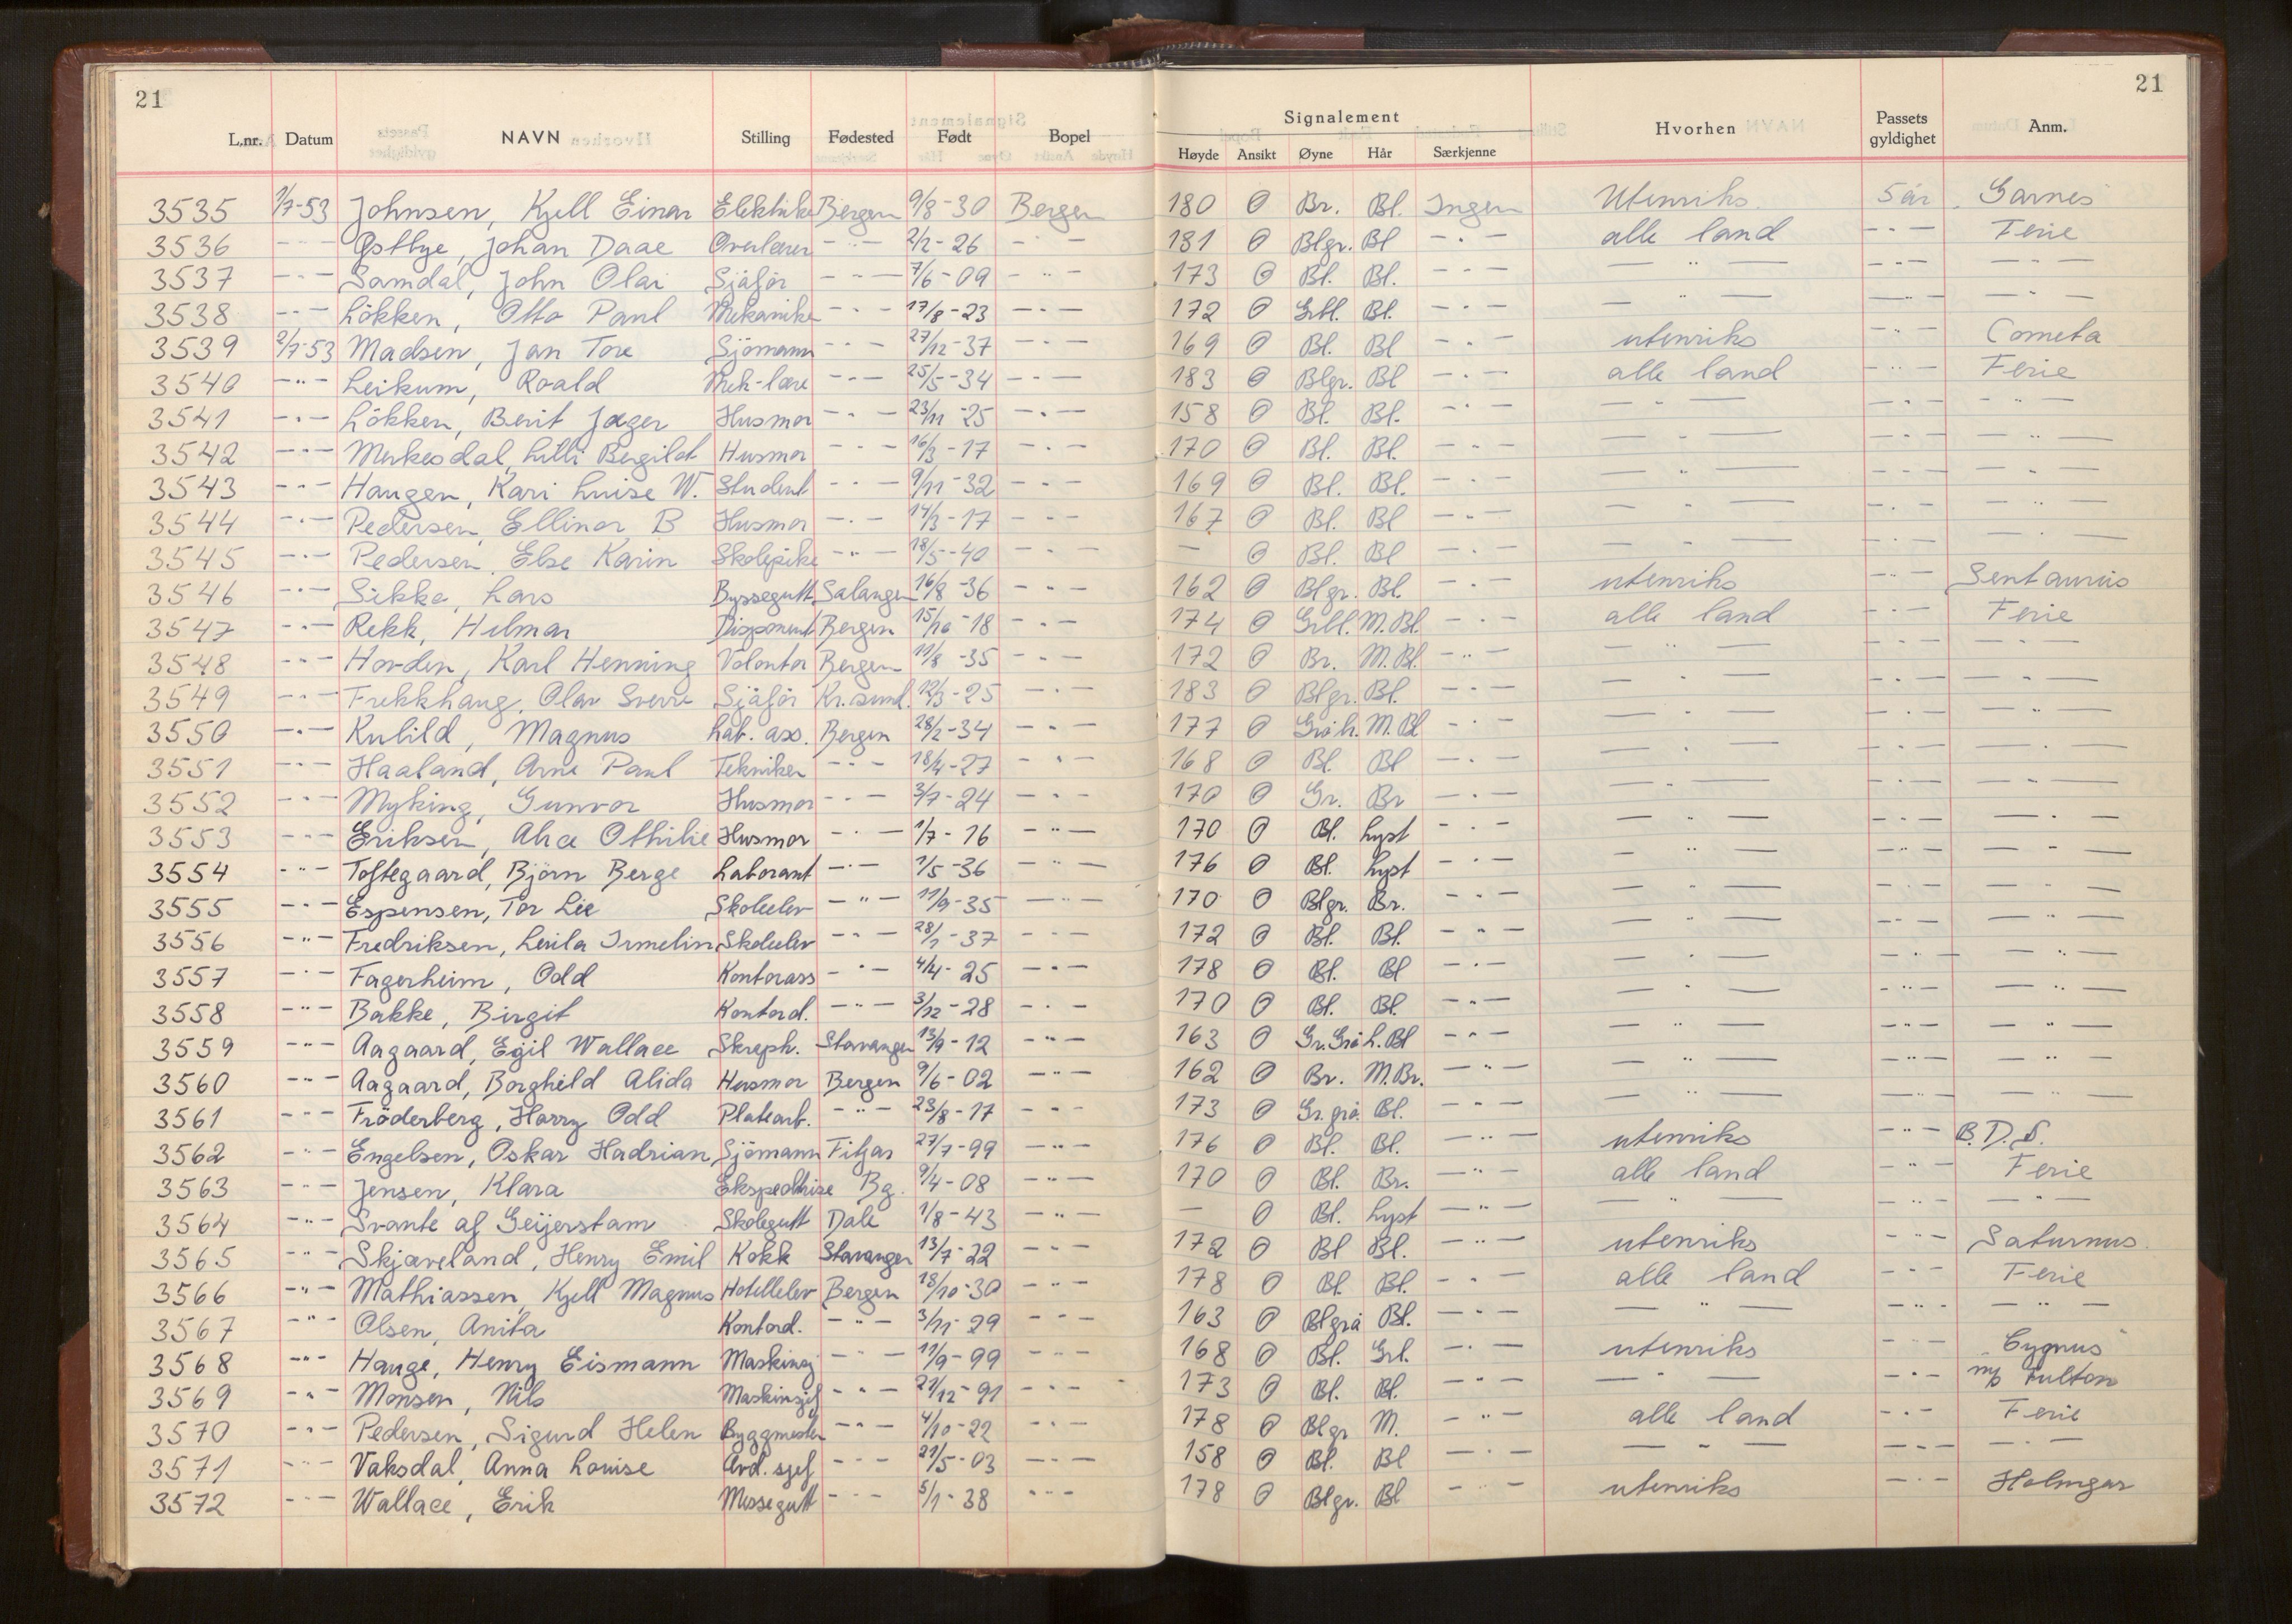 21
21
L.nr. Datum NAVN Stilling Fødested Født Bopel Signalement Hvorhen Passets gyldighet Anm.
Høyde Ansikt Øyne Hår Særkjenne
3535 1/7-53 Johnsen, Kjell Einar Elektriker Bergen 9/8-30 Bergen 180 O Br. Bl. Ingen Utenriks 5 år Garnes
3536 - " - Østbye, Johan Daae Overlærer - " - 2/2-26 - " - 181 O Blgr. Bl - " - alle land - " - Ferie
3537 - " - Samdal, John Olai Sjåfør - " - 7/6-09 - " - 173 O Bl. Bl. - " - - " - - " - - " -
3538 - " - Løkken, Otto Paul Mekaniker - " - 17/8-23 - " - 172 O Grbl. Bl. - " - - " - - " - - " -
3539 2/7-53 Madsen, Jan Tore Sjömann - " - 27/12-37 - " - 169 O Bl. Bl - " - utenriks - " - Cometa
3540 - " - Leikum, Roald Mek-lære - " - 25/5-34 - " - 183 O Blgr. Bl - " - alle land - " - Ferie
3541 - " - Løkken, Berit Jæger Husmor - " - 23/11-25 - " - 158 O Bl. Bl. - " - - " - - " - - " -
3542 - " - Merkesdal, Lilli Bergilot Husmor - " - 16/3-17 - " - 170 O Bl. Bl. - " - - " - - " - - " -
3543 - " - Haugen, Kari Luise W. Student - " - 9/11-32 - " - 169 O Bl. Bl. - " - - " - - " - - " -
3544 - " - Pedersen, Ellinor B Husmor - " - 14/3-17 - " - 167 O Bl. Bl - " - - " - - " - - " -
3545 - " - Pedersen, Else Karin Skolepike - " - 18/5-40 - " - — O Bl. Bl - " - - " - - " - - " -
3546 - " - Sikke, Lars Byssegutt Salangen 16/8-36 - " - 162 O Blgr. Bl. - " - utenriks - " - Sentaurus
3547 - " - Rekk, Hilmar Disponent Bergen 15/10-18 - " - 174 O Grbl. M.Bl. - " - alle land - " - Ferie
3548 - " - Horden, Karl Henning Volontør Bergen 11/8-35 - " - 172 O Br. M.Bl. - " - - " - - " - - " -
3549 - " - Frekkhaug, Olav Sverre Sjåfør Kr.sund. 12/3-25 - " - 183 O Blgr. Bl. - " - - " - - " - - " -
3550 - " - Kulild, Magnus Lab. ass. Bergen 28/2-34 - " - 177 O M.Bl - " - - " - - " - - " -
3551 - " - Haaland, Arne Paul Tekniker - " - 18/4-27 - " - 168 O Bl. Bl - " - - " - - " - - " -
3552 - " - Myking, Gunvor Husmor - " - 3/7-24 - " - 170 O Gr. Br - " - - " - - " - - " -
3553 - " - Eriksen, Alice Othilie Husmor - " - 1/7-16 - " - 170 O Bl. Lyst - " - - " - - " - - " -
3554 - " - Toftegaard, Björn Berge Laborant - " - 1/5-36 - " - 176 O Bl. Lyst - " - - " - - " - - " -
3555 - " - Espensen, Tor Lie Skoleelev - " - 11/9-35 - " - 170 O Blgr. Br. - " - - " - - " - - " -
3556 - " - Fredriksen, Leila Irmelin Skoleelev - " - 28/1-37 - " - 172 O Bl. Bl. - " - - " - - " - - " -
3557 - " - Fagerheim, Odd Kontorass - " - 4/4-25 - " - 178 O Bl. Bl - " - - " - - " - - " -
3558 - " - Bakke, Birgit Kontord. - " - 3/12-28 - " - 170 O Bl. Bl. - " - - " - - " - - " -
3559 - " - Aagaard, Egil Wallace Skreph. Stavanger 13/9-12 - " - 163 O Gr.Grå L.Bl - " - - " - - " - - " -
3560 - " - Aagaard, Borghild Alida Husmor Bergen 9/6-02 - " - 162 O Br. M.Br. - " - - " - - " - - " -
3561 - " - Fröderberg, Harry Odd Platearb. - " - 23/8-17 - " - 173 O Gr.grå. Bl. - " - - " - - " - - " -
3562 - " - Engelsen, Oskar Hadrian Sjömann Fitjar 27/7-99 - " - 176 O Bl. Bl. - " - utenriks - " - B.D.S.
3563 - " - Jensen, Klara Ekspeditrise Bg. 9/4-08 - " - 170 O Bl. Br. - " - alle land - " - Ferie
3564 - " - Svante af Geijerstam Skolegutt Dale 1/8-43 - " - — O Bl. Lyst - " - - " - - " - - " -
3565 - " - Skjæveland, Henry Emil Kokk Stavanger 13/7-22 - " - 172 O Bl Bl. - " - utenriks - " - Saturnus.
3566 - " - Mathiassen, Kjell Magnus Hotellelev Bergen 18/10-30 - " - 178 O Bl. Bl. - " - alle land - " - Ferie
3567 - " - Olsen, Anita Kontord. - " - 3/11-29 - " - 163 O Blgrå Bl. - " - - " - - " - - " -
3568 - " - Hauge, Henry Eismann Maskinsj - " - 11/9-99 - " - 168 O Bl. Grl. - " - utenriks - " - Cygnus
3569 - " - Monsen, Nils Maskinsjef - " - 21/12-91 - " - 173 O Bl. Bl. - " - - " - - " - m/s Fulton
3570 - " - Pedersen, Sigurd Helen Byggmester - " - 4/10-22 - " - 178 O Blgr M. - " - alle land - " - Ferie
3571 - " - Vaksdal, Anna Louise Avd. sjef - " - 21/5-03 - " - 158 O Bl. Bl - " - - " - - " - - " -
3572 - " - Wallace, Erik Messegutt - " - 5/1-38 - " - 178 O Blgr. Bl - " - utenriks - " - Holmgar